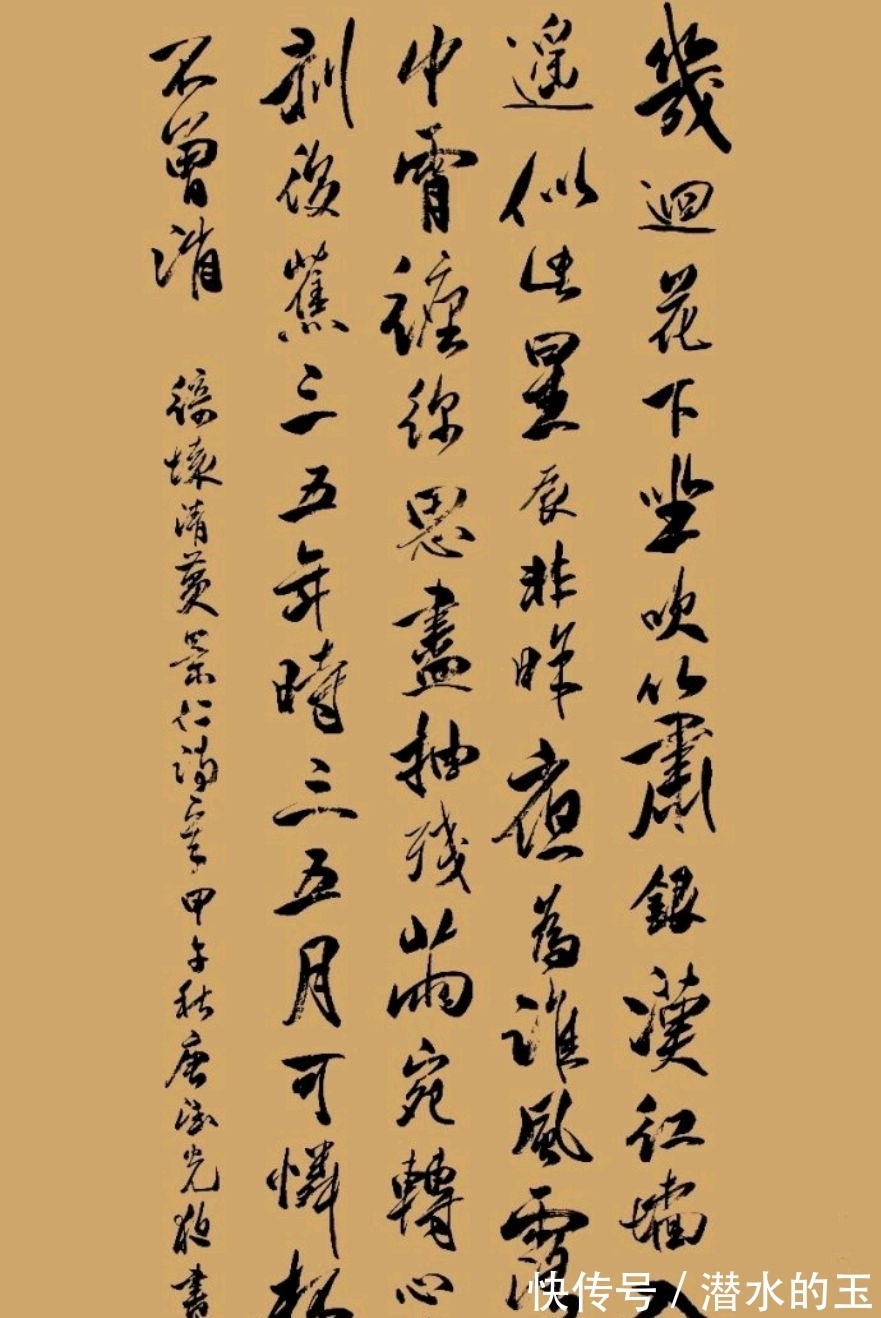 幾迴花下坐吹簫銀漢紅墻入
遥似此星辰非昨夜為誰風露
中宵纏綿思盡抽殘繭宛轉心
剥後蕉三五年時三五月可憐杯
不曾消
綺懷清黄景仁詩一章甲午秋唐光書
快传号/潜水的玉